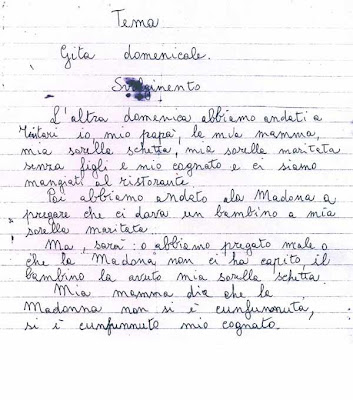 Tema
Gita domenicale.
Svolgimento
L'altra domenica abbiamo andati a
io, mio papà, la mia mamma,
mia sorella schetta, mia sorella maritata
senza figli e mio cognato e ci siamo
mangiati al ristorante.
Poi abbiamo andato ala Madona a
pregare che ci dava un bambino a mia
sorella maritata.
Ma, sarà: o abbiamo pregato male o
che la Madona non ci ha capito, il
bambino la avuto mia sorella schetta.
Mia mamma dia che la
Madonna non si è cunfunnuta,
si è cunfunnuto mio cognato.